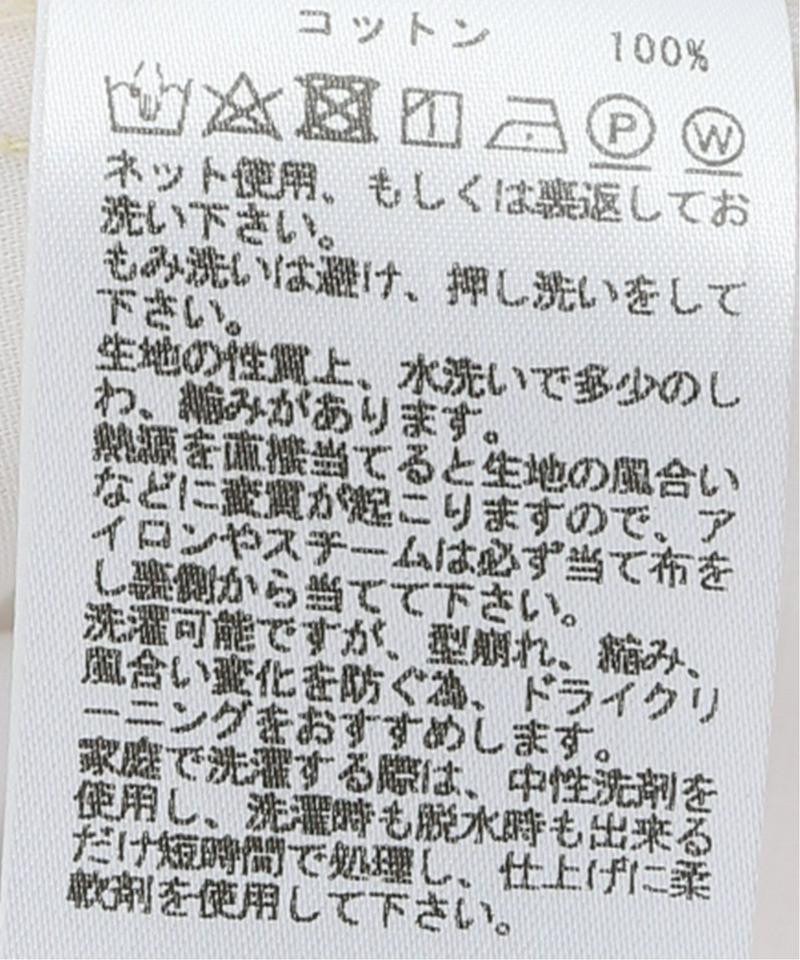 コットン 100%
P W
ネット使用、もしくは裏返してお
洗い下さい。
もみ洗いは避け、押し洗いをして
下さい。
生地の性質上、水洗いで多少のし
わ、縮みがあります。
熱源を直接当てると生地の風合い
などに変質が起こりますので、ア
イロンやスチームは必ず当て布を
し裏側から当てて下さい。
洗濯可能ですが、型崩れ、縮み、
風合い変化を防ぐ為、ドライクリ
ーニングをおすすめします。
家庭で洗濯する際は、中性洗剤を
使用し、洗濯時も脱水時も出来る
だけ短時間で処理し、仕上げに柔
軟剤を使用して下さい。